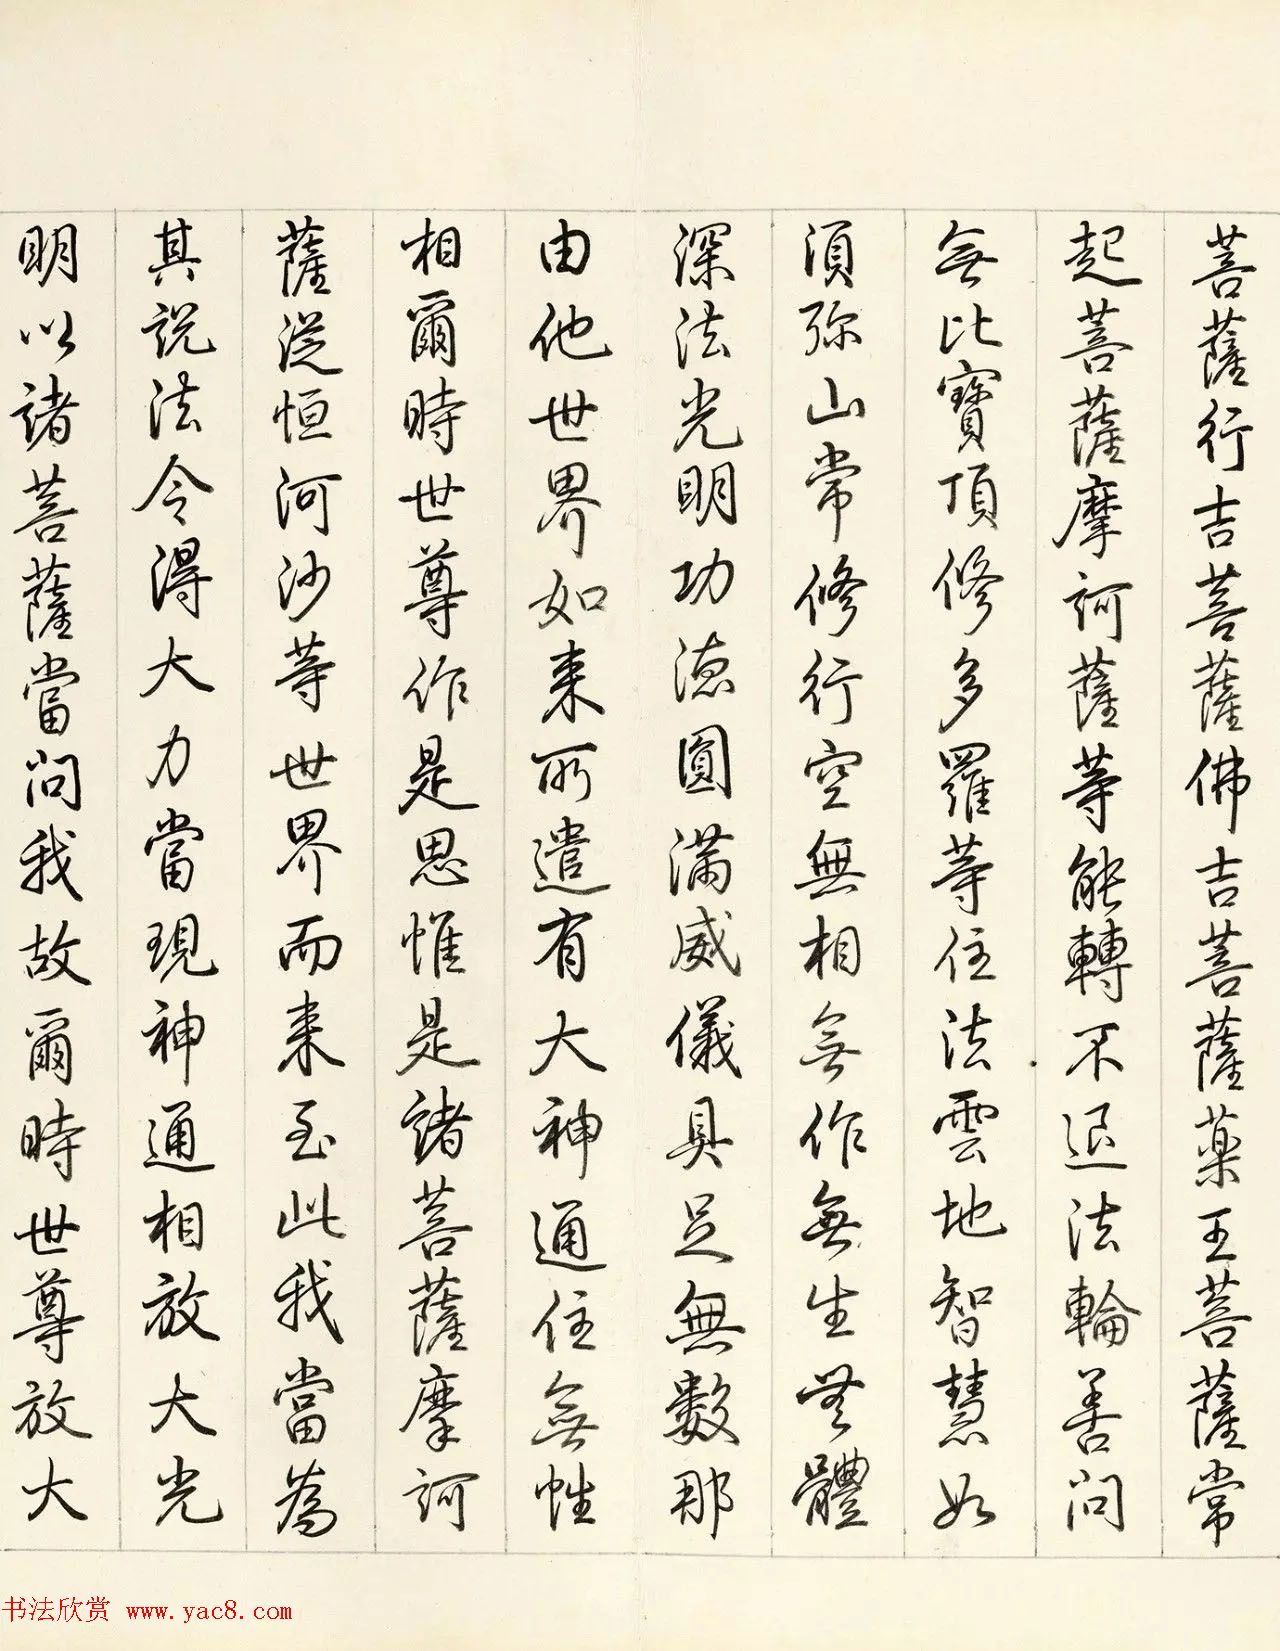 菩薩行吉菩薩佛吉菩薩藥王菩薩常
起菩薩摩訶薩等能轉不退法輪善問
無比寶頂修多羅等住法雲地智慧如
須弥山常修行空無相無作無生無體
深法光明功德圓滿威儀具足無數那
由他世界如来所遣有大神通住無性
相爾時世尊作是思惟是諸菩薩摩訶
薩從恒河沙等世界而来至此我當為
其說法令得大力當現神通相放大光
明以諸菩薩當問我故爾時世尊放大
书法欣赏 www.yac8.com